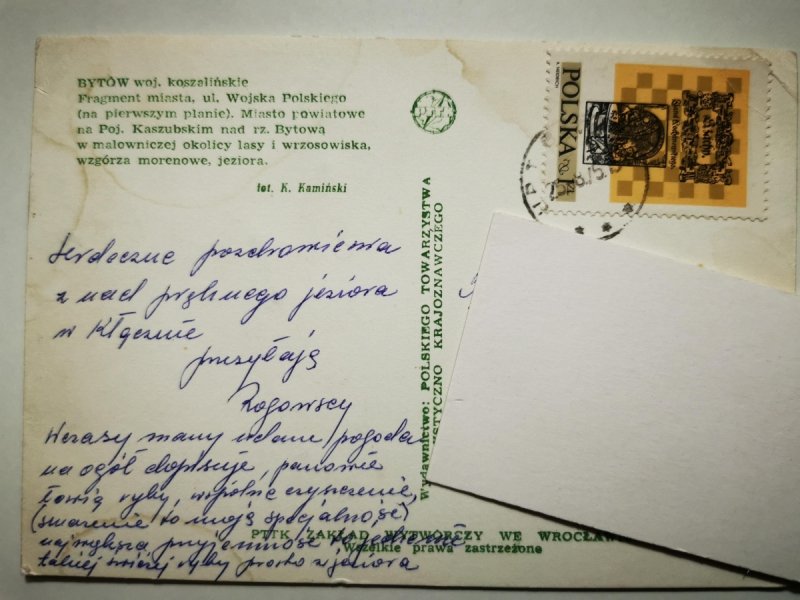 BYTÓW woj. koszalińskie
Fragment miasta, ul. Wojska Polskiego
(na pierwszym planie). Miasto powiatowe
na Poj. Kaszubskim nad rz. Bytową
w malowniczej okolicy lasy i wrzosowiska,
wzgórza morenowe, jeziora.
fot. K. Kamiński
Serdeczne pozdrowienia
z nad pięknego jeziora
w Kłącznie
przesyłają
Rogowscy
Wczasy mamy udane, pogoda
na ogół dopisuje, panowie
łowią ryby, wspólne czyszczenie,
(smażenie to moja specjalność)
największa przyjemność to jedzenie
takiej świeżej ryby prosto z jeziora
Wydawnictwo: POLSKIEGO TOWARZYSTWA
KRAJOZNAWCZEGO
PTTK ZAKŁAD WYTWÓRCZY WE
Wszelkie prawa zastrzeżone
POLSKA 1